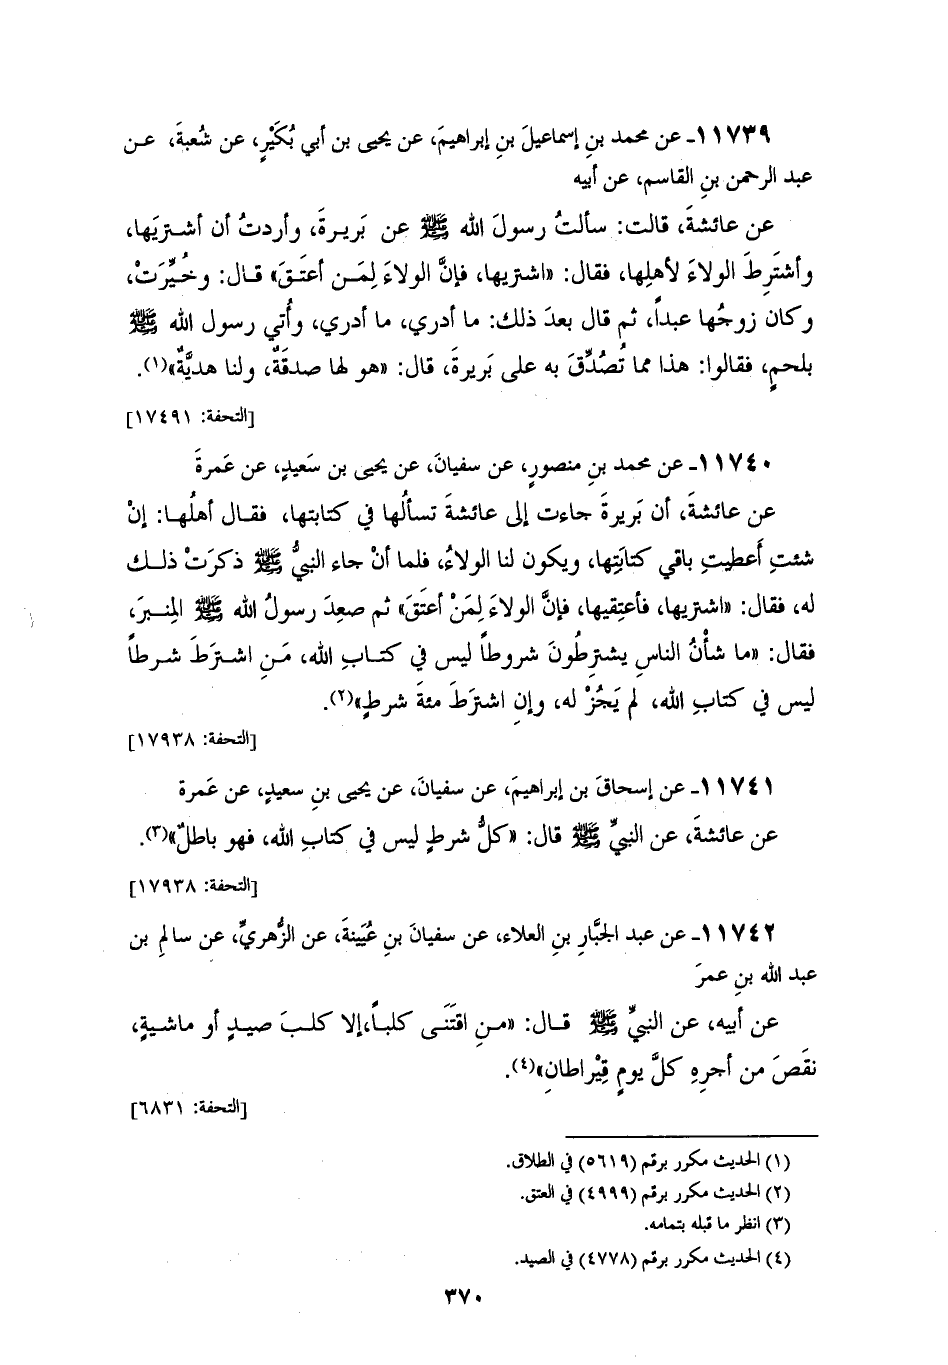 ١١٧٣٩ـ عن محمد بنِ إسماعيلَ بنِ إبراهيمَ، عن يحيى بن أبي بُكَيْرٍ، عن شُعبةَ، عـن
عبد الرحمن بنِ القاسم، عن أبيه
عن عائشةَ، قالت: سألتُ رسولَ الله ﷺ عن بَريـرةَ، وأردتُ أن أشـتريَها،
وأشتَرِطَ الولاءَ لأهلِها، فقال: «اشتريها، فإنَّ الولاءَ لِمَـن أعتَـقَ» قـال: وخُـيِّرَتْ،
وكان زوجُها عبداً، ثم قال بعدَ ذلك: ما أدري، ما أدري، وأُتي رسول الله ﷺ
بلحمٍ، فقالوا: هذا مما تُصُدِّقَ به على بَريرةَ، قال: «هو لها صدقَةٌ، ولنا هديَّةٌ»(١).
[التحفة: ١٧٤٩١]
١١٧٤٠ـ عن محمد بنِ منصورٍ، عن سفيانَ، عن يحيى بن سَعيدٍ، عن عَمرةَ
عن عائشةَ، أن بَريرةَ جاءت إلى عائشةَ تسألُها في كتابتها، فقـال أهلُهـا: إنْ
شئتِ أَعطيتِ باقي كتابَتِها، ويكون لنا الولاءُ، فلما أنْ جاء النبيُّ ﷺ ذكرَتْ ذلـك
له، فقال: «اشتريها، فأعتِقيها، فإنَّ الولاءَ لِمَنْ أعتَقَ» ثم صعِدَ رسولُ الله ﷺ المِنـبرَ،
فقال: «ما شأْنُ الناسِ يشترِطُونَ شروطاً ليس في كتـابِ الله، مَـنِ اشـتَرَطَ شـرطاً
ليس في كتابِ الله، لم يَجُزْ له، وإنِ اشتَرَطَ مئةَ شرطٍ»(٢).
[التحفة: ١٧٩٣٨]
١١٧٤١ـ عن إسحاقَ بن إبراهيمَ، عن سفيانَ، عن يحيى بنِ سعيدٍ، عن عَمرة
عن عائشةَ، عن النبيِّ ﷺ قال: «كلُّ شرطٍ ليس في كتابِ الله، فهو باطلٌ»(٣).
[التحفة: ١٧٩٣٨]
١١٧٤٢ـ عن عبد الجبَّارِ بنِ العلاء، عن سفيانَ بنِ عُيَينةَ، عن الزُّهريِّ، عن سالمِ بن
عبد الله بنِ عمرَ
عن أبيه، عن النبيِّ ﷺ قـال: «مـنِ اقتَنَـى كلبـاً،إلا كلـبَ صيـدٍ أو ماشيةٍ،
نقَصَ من أجرِهِ كلَّ يومٍ قِيْراطانِ»(٤).
[التحفة: ٦٨٣١]
(١) الحديث مكرر برقم (٥٦١٩) في الطلاق.
(٢) الحديث مكرر برقم (٤٩٩٩) في العتق.
(٣) انظر ما قبله بتمامه.
(٤) الحديث مكرر برقم (٤٧٧٨) في الصيد.
٣٧٠